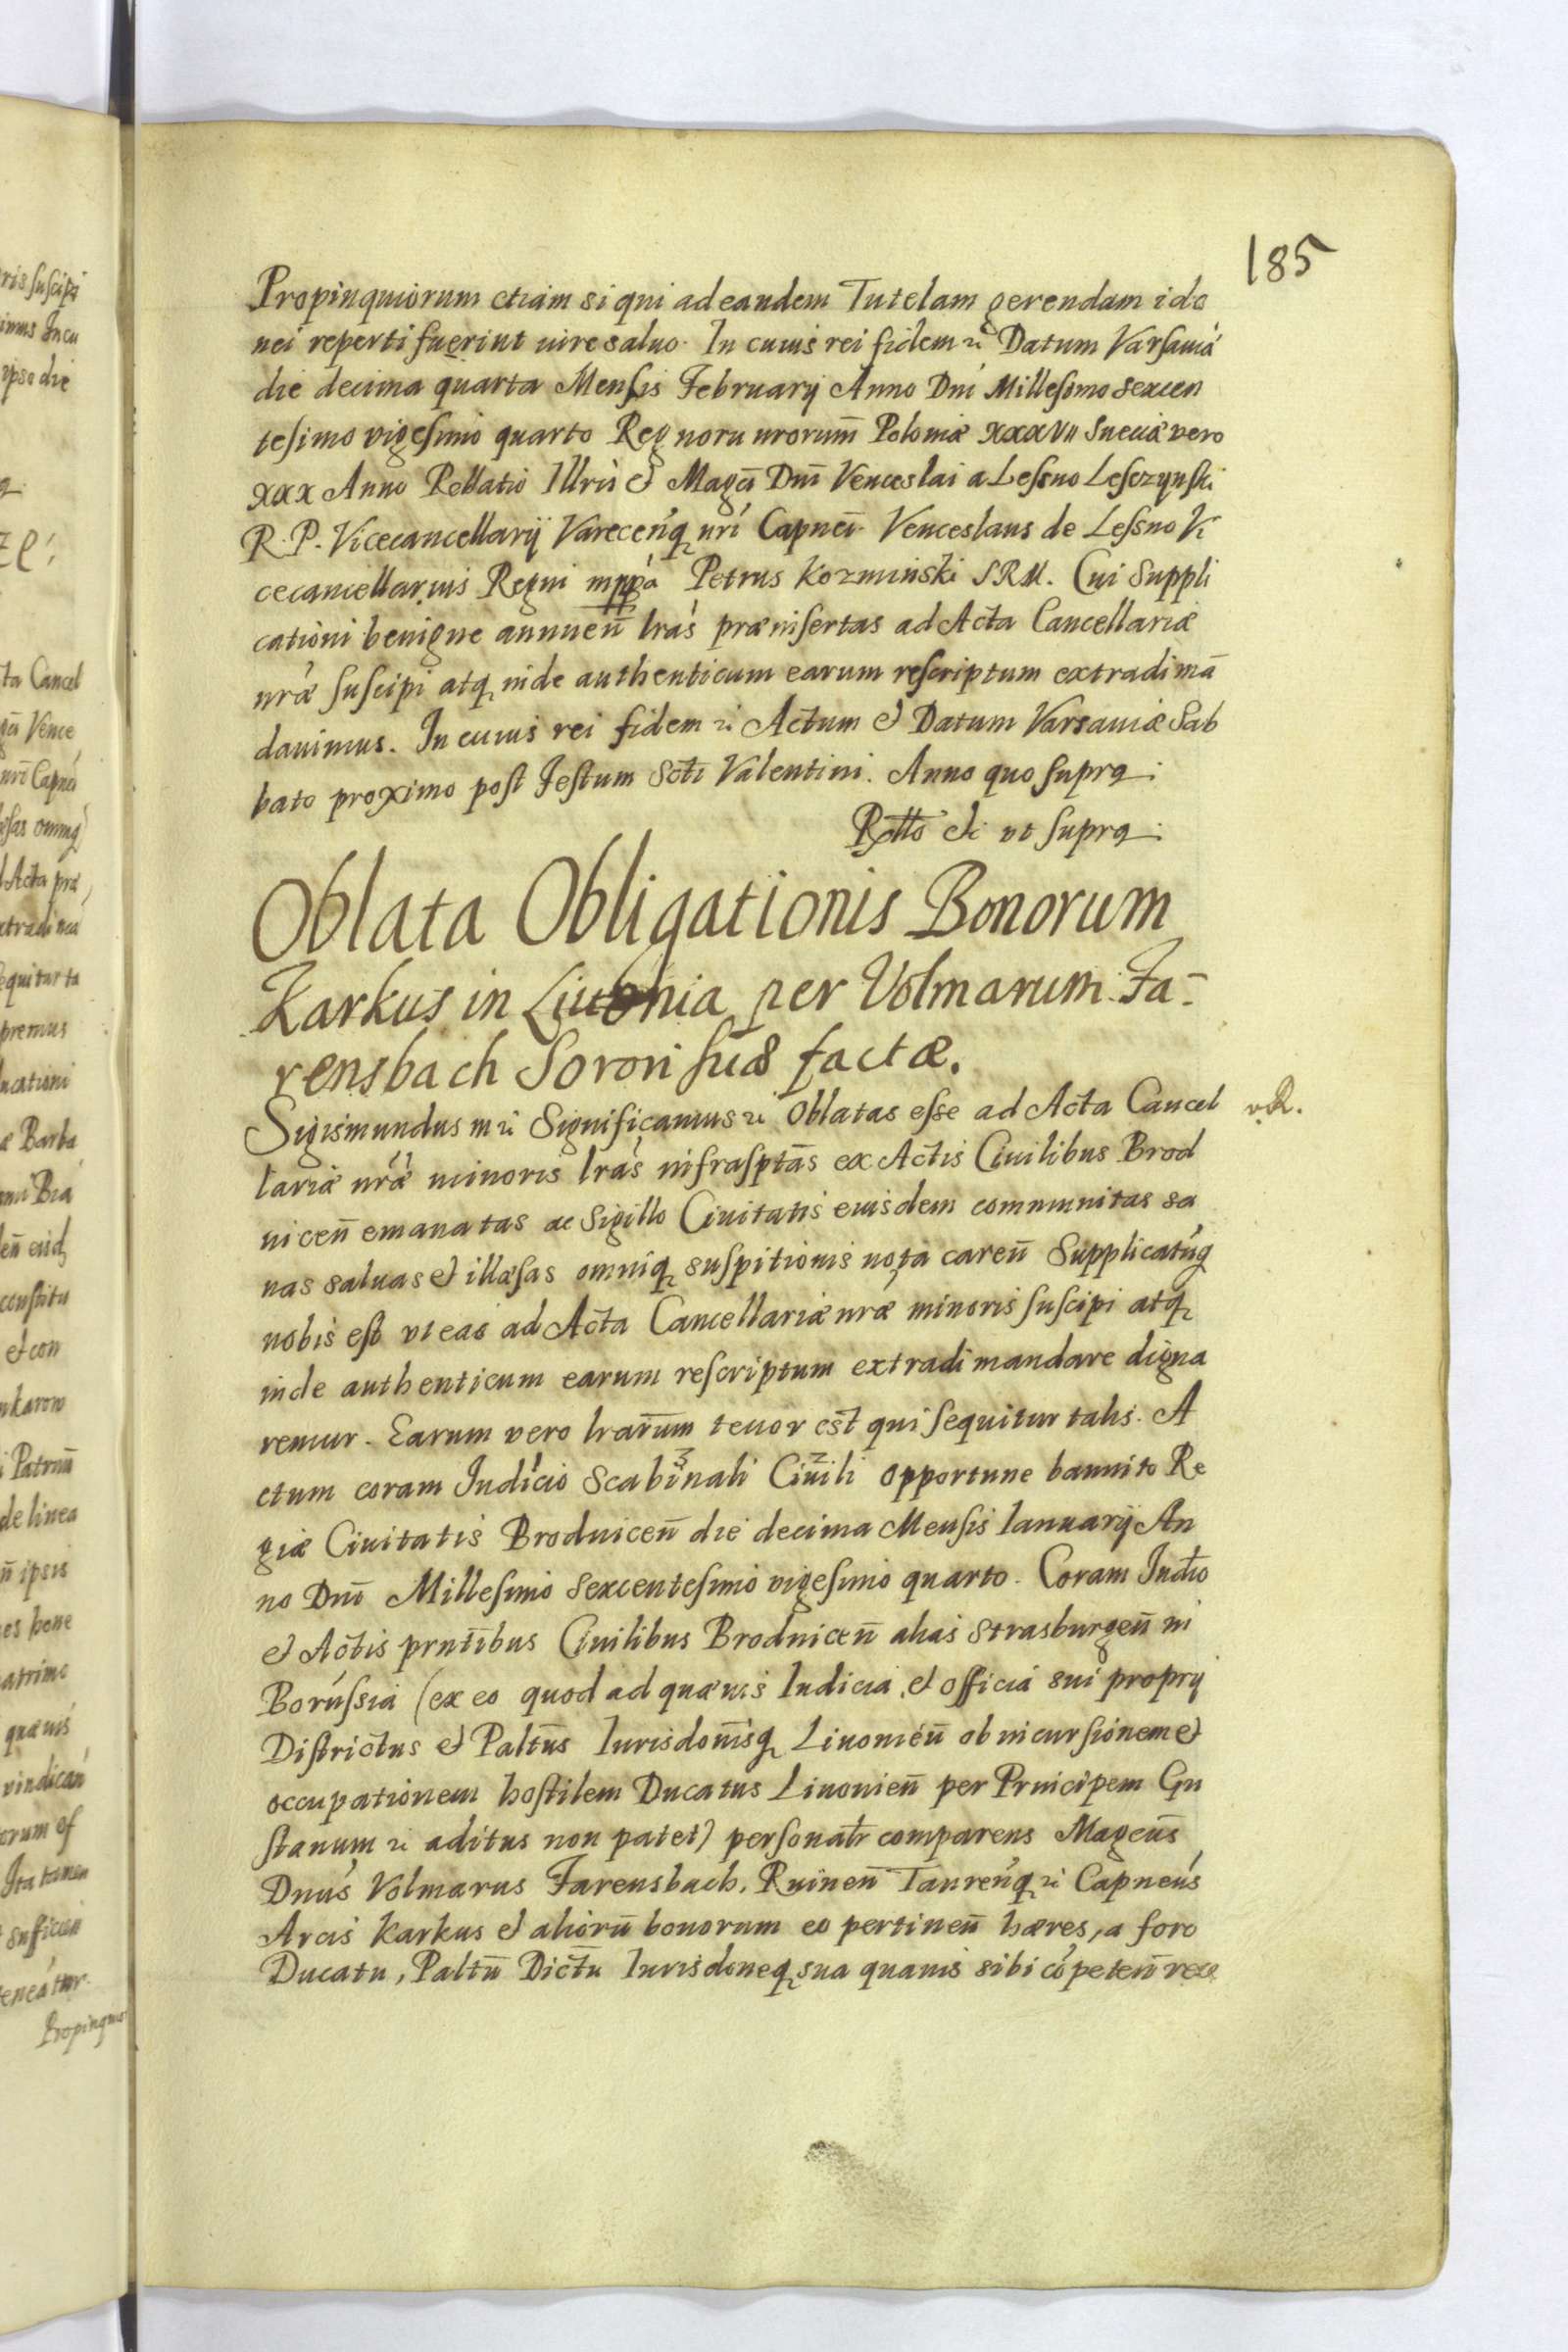 185
Propinquiorum etiam si qui ad eandem Tutelam gerendam ido
nei reperti fuerint iure saluo. In cuius rei fidem &c Datum Varsauiæ
die decima quarta Mensis February Anno Dni Millesimo sexcen
tesimo vigesimo quarto Regnoru nrorum̄ Poloniæ XXXVII Sueciæ vero
XXX Anno Rellatio Illris et Magci Dni Venceslai a Lessno Lesczynski
R. P. Vicecancellarij Varecen̄q nri Capnei. Venceslaus de Lessno Vi
cecancellarius Regni mppa Petrus Kozminski SRM. Cui Suppli
cationi benigne annuen̄ lras præinsertas ad Acta Cancellariæ
nræ suscipi atq inde authenticum earum rescriptum extradi mā
dauimus. In cuius rei fidem &c Actum et Datum Varsauiæ Sab
bato proximo post Festum Scti Valentini. Anno quo supra:
Rltto &c vt supra:
Oblata Obligationis Bonorum
Karkus in Liuonia per Volmarum Fa-
rensbach Sorori suæ factæ.
Sigismundus III &c Significamus &c Oblatas esse ad Acta Cancel
lariæ nræ minoris lras infrasptas ex Actis Ciuilibus Brod
nicen̄ emanatas ac Sigillo Ciuitatis eiusdem communitas sa
nas saluas et illæsas omniq suspitionis nota caren̄ Supplicatuq
nobis est vt eas ad Acta Cancellariæ nræ minoris suscipi atq
inde authenticum earum rescriptum extradi mandare digna
remur. Earum vero lrarum̄ tenor est qui sequitur talis. A
ctum coram Iudicio Scabinali 3 Ciuili 2 opportune bannito Re
giæ Ciuitatis Brodnicen̄ die decima Mensis Ianuarij An
no Dni Millesimo sexcentesimo vigesimo quarto. Coram Iudio
et Actis prntibus Ciuilibus Brodnicen̄ alias Strasburgen̄ in
Borussia (ex eo quod ad quæuis Iudicia, et officia sui proprij
Districtus et Paltus Iurisdonisq Liuonien̄ ob incursionem et
occupationem hostilem Ducatus Liuonien̄ per Principem Gu
stauum &c aditus non patet) personatr comparens Magcus
Dnus Volmarus Farensbach, Ruinen̄ Tauren̄q &c Capneus
Arcis Karkus et alioru bonorum eo pertinen̄ hæres, a foro
Ducatu, Paltu Dictu Iurisdoneq sua quauis sibi copeten̄ rece